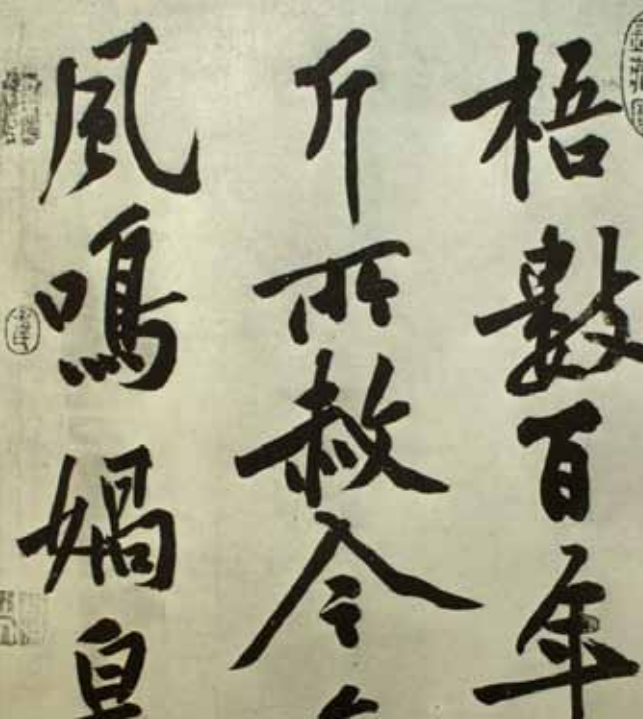 梧數百年
斤所赦今
風鳴媧皇